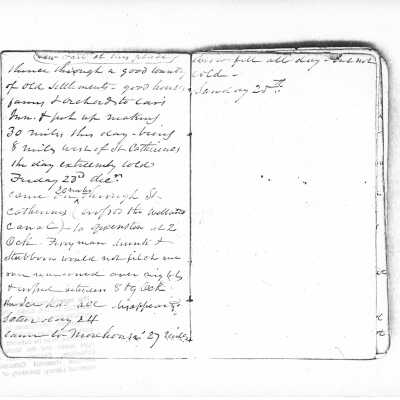 thence through a good country
of old settlements - good houses
farms & orchards to Car's
Inn. & put up making
30 miles this day - being
8 miles west of St Catherines
the day extremely cold
Friday 23d dec
came on 20 miles through St
Catherines (crossed the Welland
Canal) to Queenston at 2
Ock Ferryman drunk &
Stubborn would not fetch me
over
& crossed between 8 & 9 Ock
all disappear
Saturday 24
came to 27 miles
snow fell all day - but not
Cold -
Sunday 25th